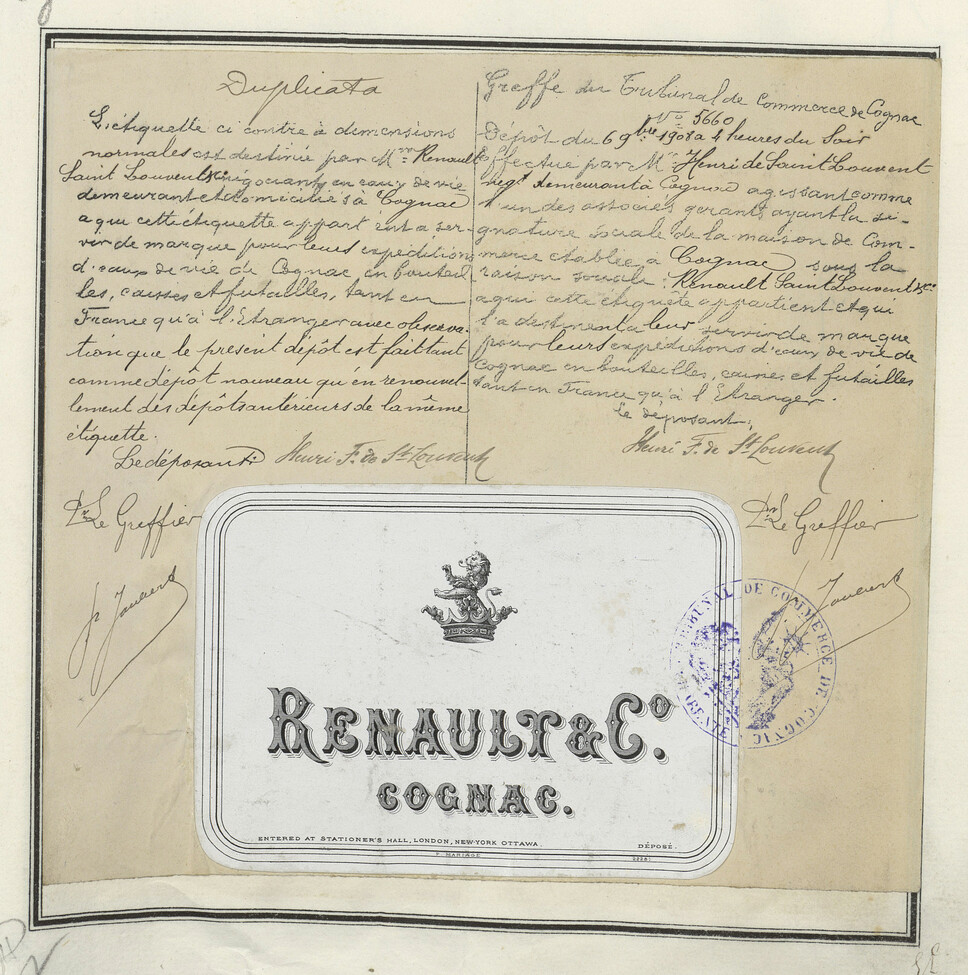 Duplicata
L'étiquette ci contre à dimensions
normales est destinée par Mrs Renault
Saint Louvent négociants en eaux de vie
demeurant et domiciliés à Cognac
a qui cette étiquette appartient a ser-
vir de marque pour leurs expéditions
d'eaux de vie de Cognac, en bouteil
les, caisses et futailles, tant en
France qu'à l'Etranger avec observa-
tion que le présent dépôt est fait tant
comme dépôt nouveau qu'en renouvel-
lement des dépôts antérieurs de la même
étiquette.
Le déposant
Henri F. de St Louvent
Pr Le Greffier
Greffe du Tribunal de Commerce de Cognac
No 5660
Dépôt du 6 9bre 1908 a 4 heures du Soir
Effectué par Mr Henri de Saint Louvent
negt demeurant à Cognac agissant comme
l'un des associés gérants ayant la si-
gnature sociale de la maison de Com-
merce établie à Cognac sous la
raison sociale: Renault Saint Louvent &Cie
a qui cette étiquette appartient et qui
l'a destinent a leur servir de marque
pour leurs expéditions d'eaux de vie de
Cognac en bouteilles, caisses et futailles
tant en France qu'à l'Etranger.
le déposant,
Henri F. de St Louvent
Pr Le Greffier
TRIBUNAL DE COMMERCE DE COGNAC
RENAULT & Co.
COGNAC.
ENTERED AT STATIONER'S HALL, LONDON, NEW-YORK OTTAWA.
DÉPOSÉ.